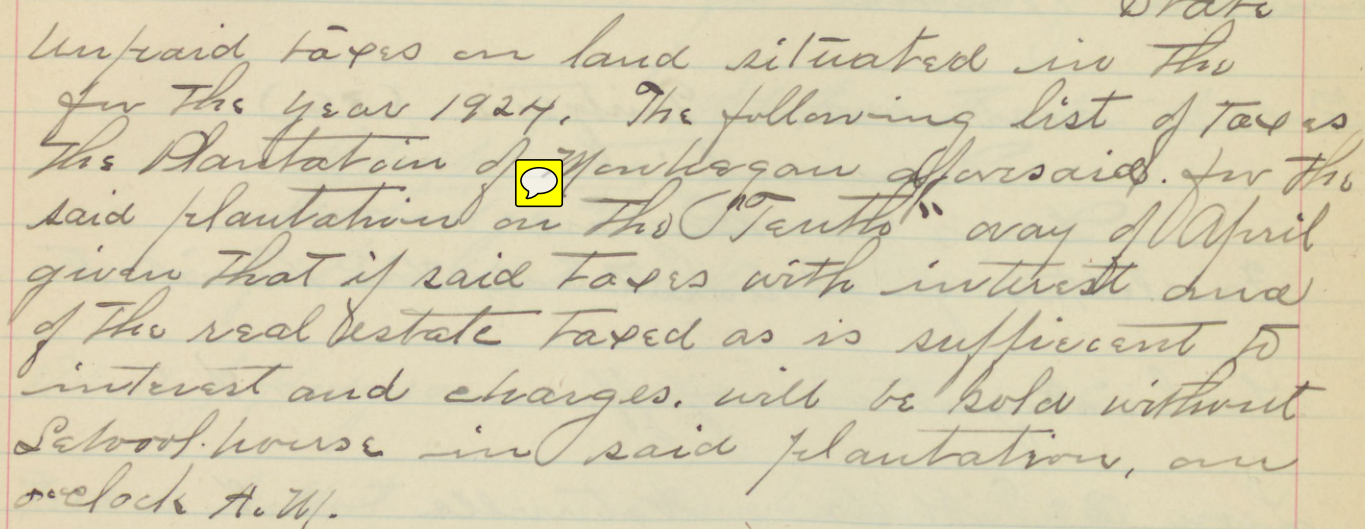 State
Unpaid taxes on land situated in the
for the year 1924. The following list of Taxes
the Plantation of Monhegan afforsaid. for the
said plantation on the "Tenth" day of April
given that if said taxes with interest and
of the real estate taxed as is suffiecent to
interest and charges. will be sold without
School.house in said plantation, on
o-clock A.M.